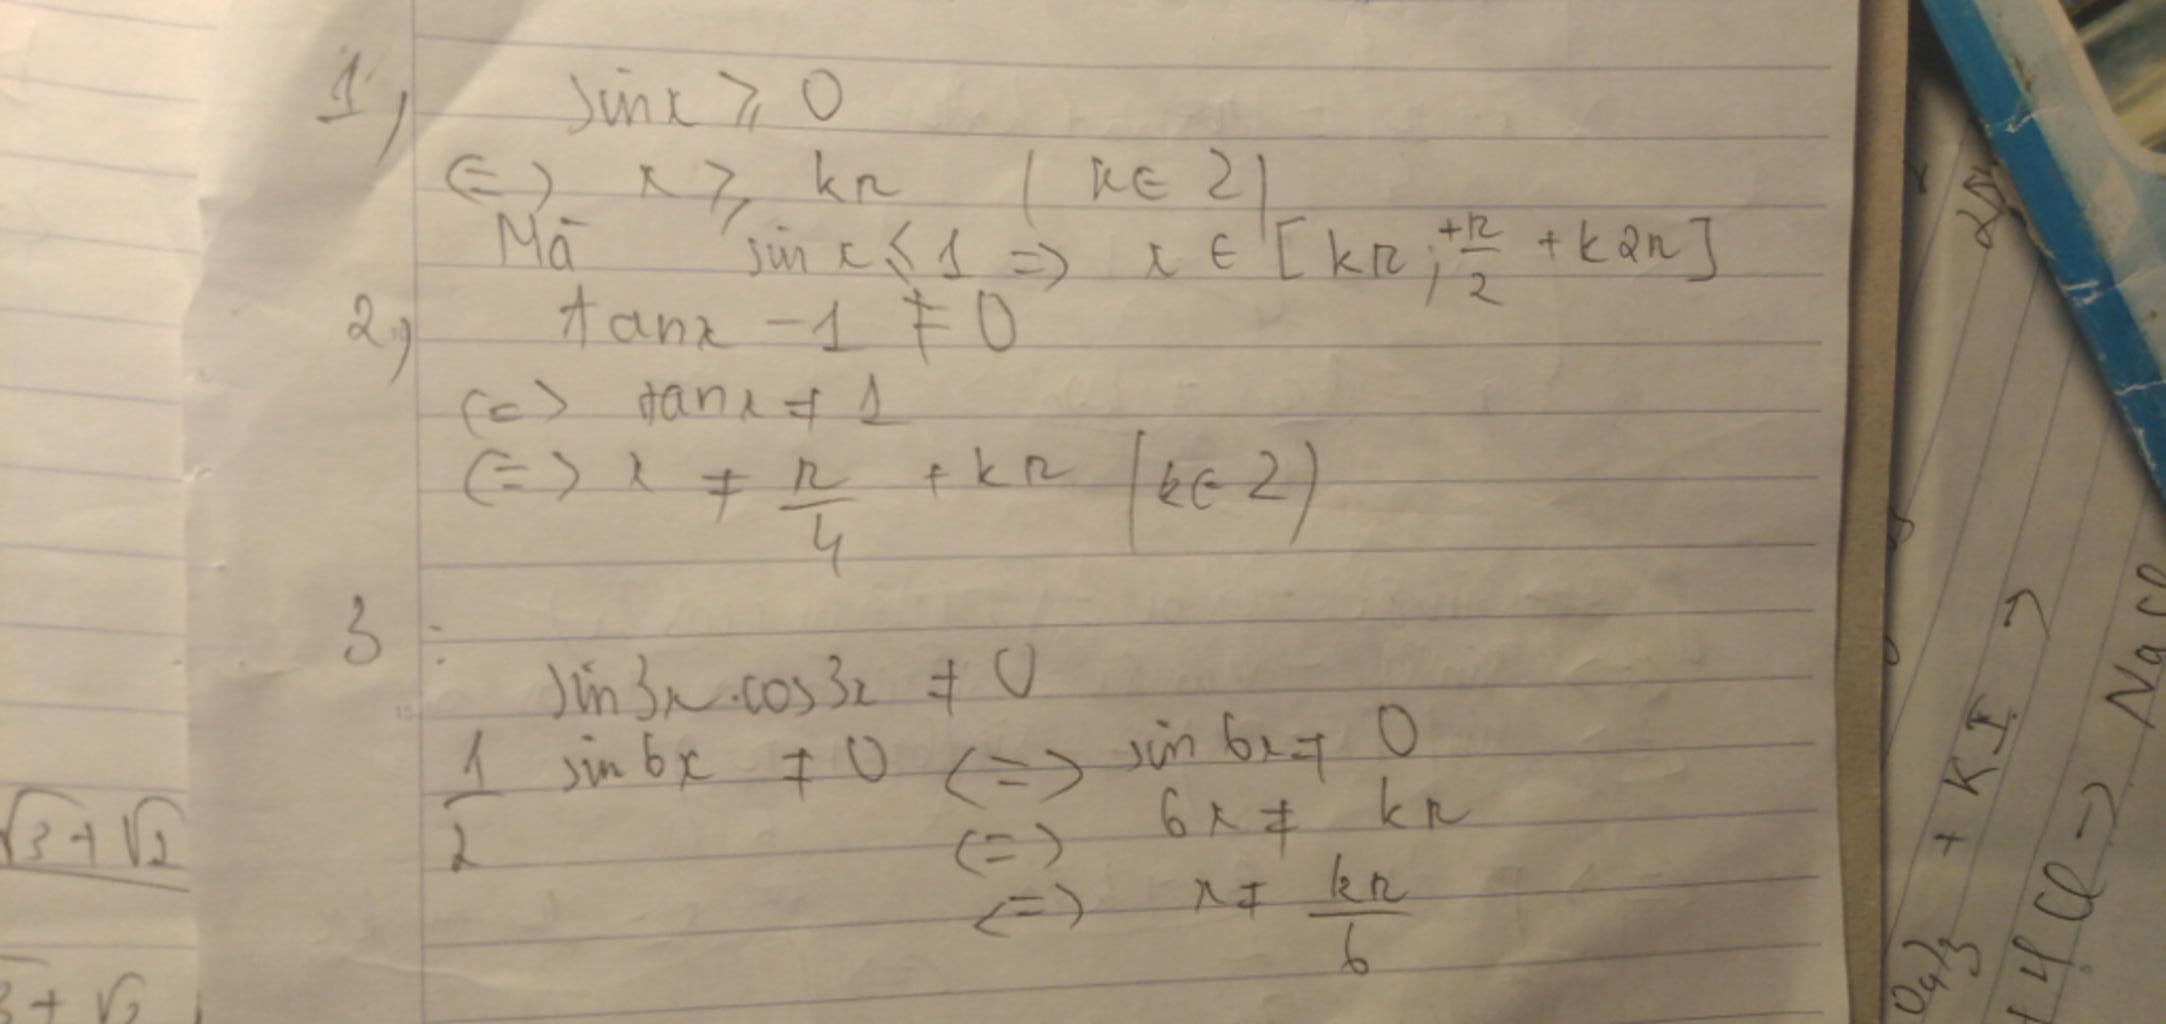 1, sinx ⩾ 0
<=> x ⩾ kπ (k∈Z)
Mà sin x ⩽ 1 => x ∈ [kπ; +π/2 + k2π]
2, tanx - 1 ≠ 0
<=> tanx ≠ 1
<=> x ≠ π/4 + kπ (k∈Z)
3:
sin3x.cos3x ≠ 0
1/2 sin6x ≠ 0 <=> sin6x ≠ 0
<=> 6x ≠ kπ
<=> x ≠ kπ/6
√3+√2
+ √2
+ KI →
+ 4Cl → NaCl